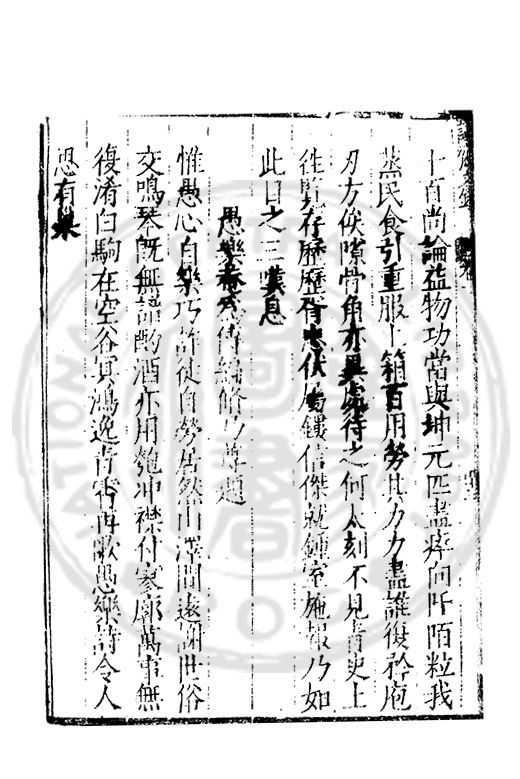 十首尚論益物功當與坤元匹盡瘁向阡陌粒我
蒸民食引重服上箱百用勞其力力盡誰復矜庖
刀方俟隙骨角亦異處待之何太刻不見青史上
往監存歷歷胥忠伏屬鏤信傑就鍾室施報乃如
此目之三嘆息
愚樂菴為傅編脩乃尊題
惟愚心自樂巧詐徒自勞居然山澤間遠謝世俗
交鳴琴旣無譜酌酒亦用匏冲襟付寥廓萬事無
復淆白駒在空谷冥鴻逸青霄再歌愚樂詩令人
思有巢